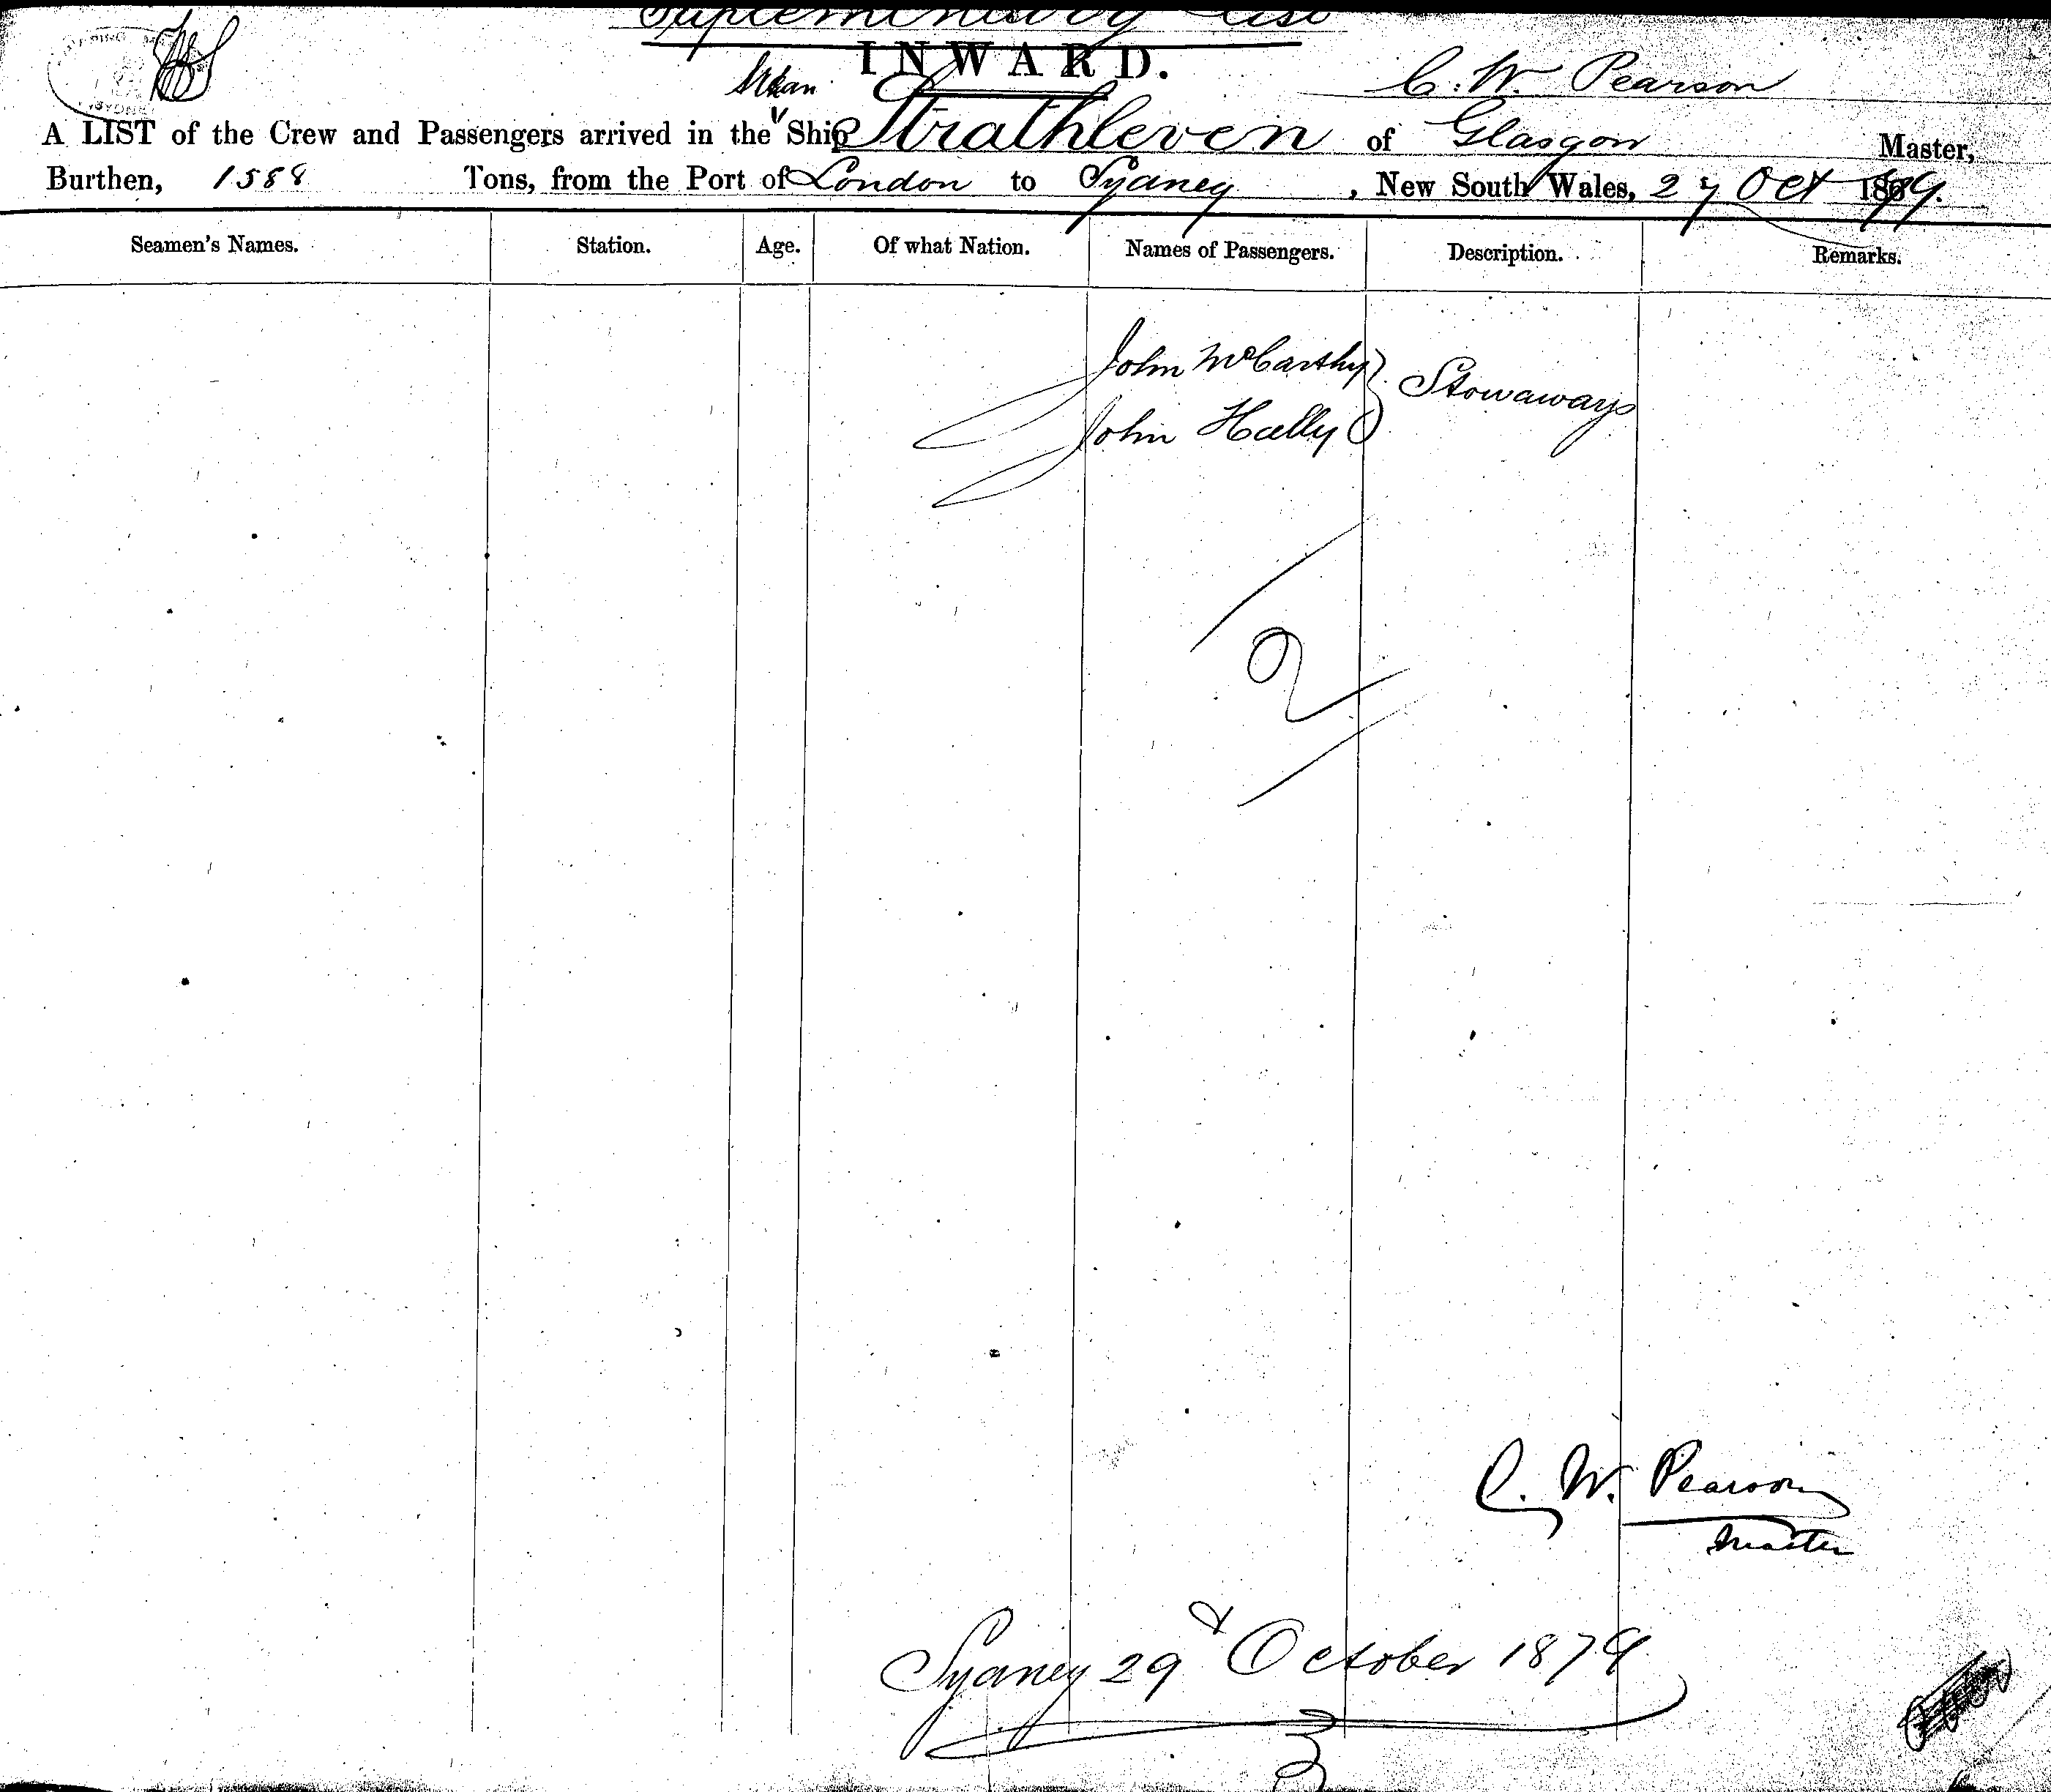 Suplementary List
INWARD.
C. W. Pearson
A LIST of the Crew and Passengers arrived in the Ship Strathleven of Glasgow Master,
Burthen, 1588 Tons, from the Port of London to Sydney, New South Wales, 27 Oct 1879.
Seamen's Names. Station. Age. Of what Nation. Names of Passengers. Description. Remarks.
John McCarthy } Stowaways
John Hally
2
C. W. Pearson
Master
Sydney 29th October 1879